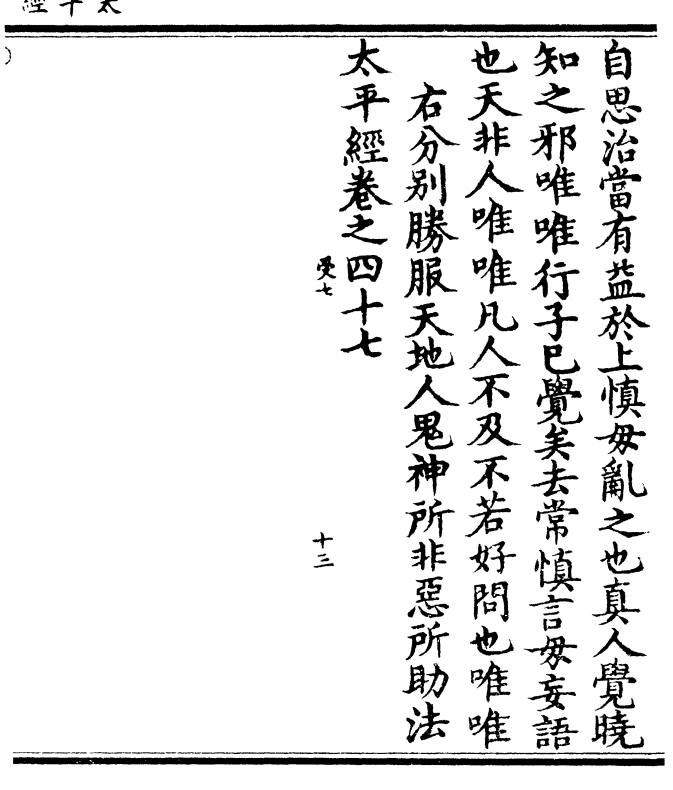 太平經
自思治當有益於上慎毋亂之也真人覺曉
知之邪唯唯行子已覺矣去常慎言毋妄語
也天非人唯唯凡人不及不若好問也唯唯
右分別勝服天地人鬼神所非惡所助法
太平經卷之四十七
受七
十三